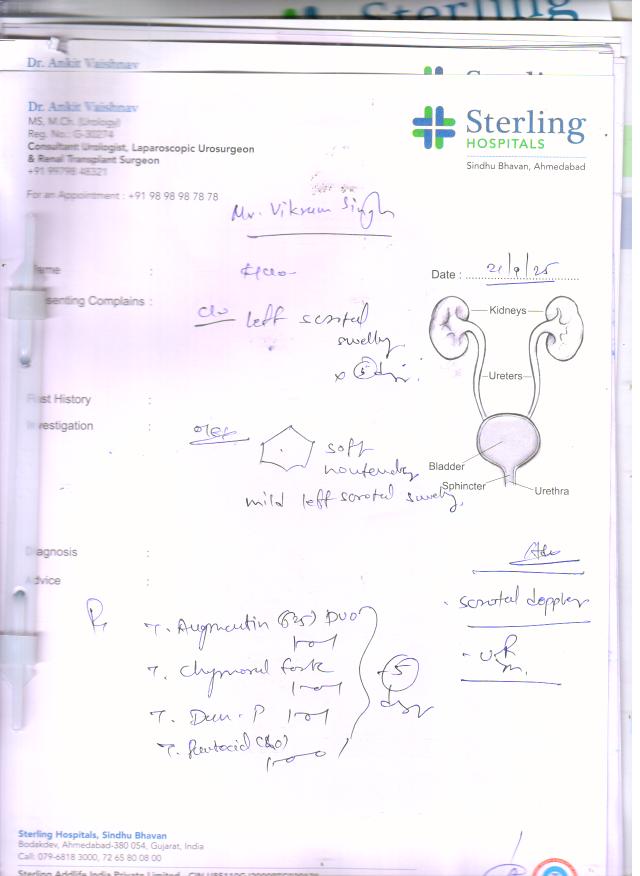 Dr. Ankit Vaishnav
Dr. Ankit Vaishnav
MS, M.Ch. (Urology)
Reg. No.: G-30274
Consultant Urologist, Laparoscopic Urosurgeon
& Renal Transplant Surgeon
+91 99798 48321
For an Appointment : +91 98 98 98 78 78
Sterling
HOSPITALS
Sindhu Bhavan, Ahmedabad
Mr. Vikram Singh
ame :
Date : 21/9/25
senting Complains :
c/o left scrotal
swelling
x 5 days.
Kidneys
Ureters
Bladder
Sphincter
Urethra
st History :
vestigation :
soft
nontender
mild left scrotal swelling.
iagnosis :
dvice :
Adv
- scrotal doppler
- U R/M.
Rx
T. Augmentin (625) DUO
1-0-1
T. Chymoral forte
1-0-1
T. Dan-P 1-0-1
T. Pentocid (40)
1-0-0
5 days
Sterling Hospitals, Sindhu Bhavan
Bodakdev, Ahmedabad-380 054, Gujarat, India
Call: 079-6818 3000, 72 65 80 08 00
Sterling Addlife India Private Limited